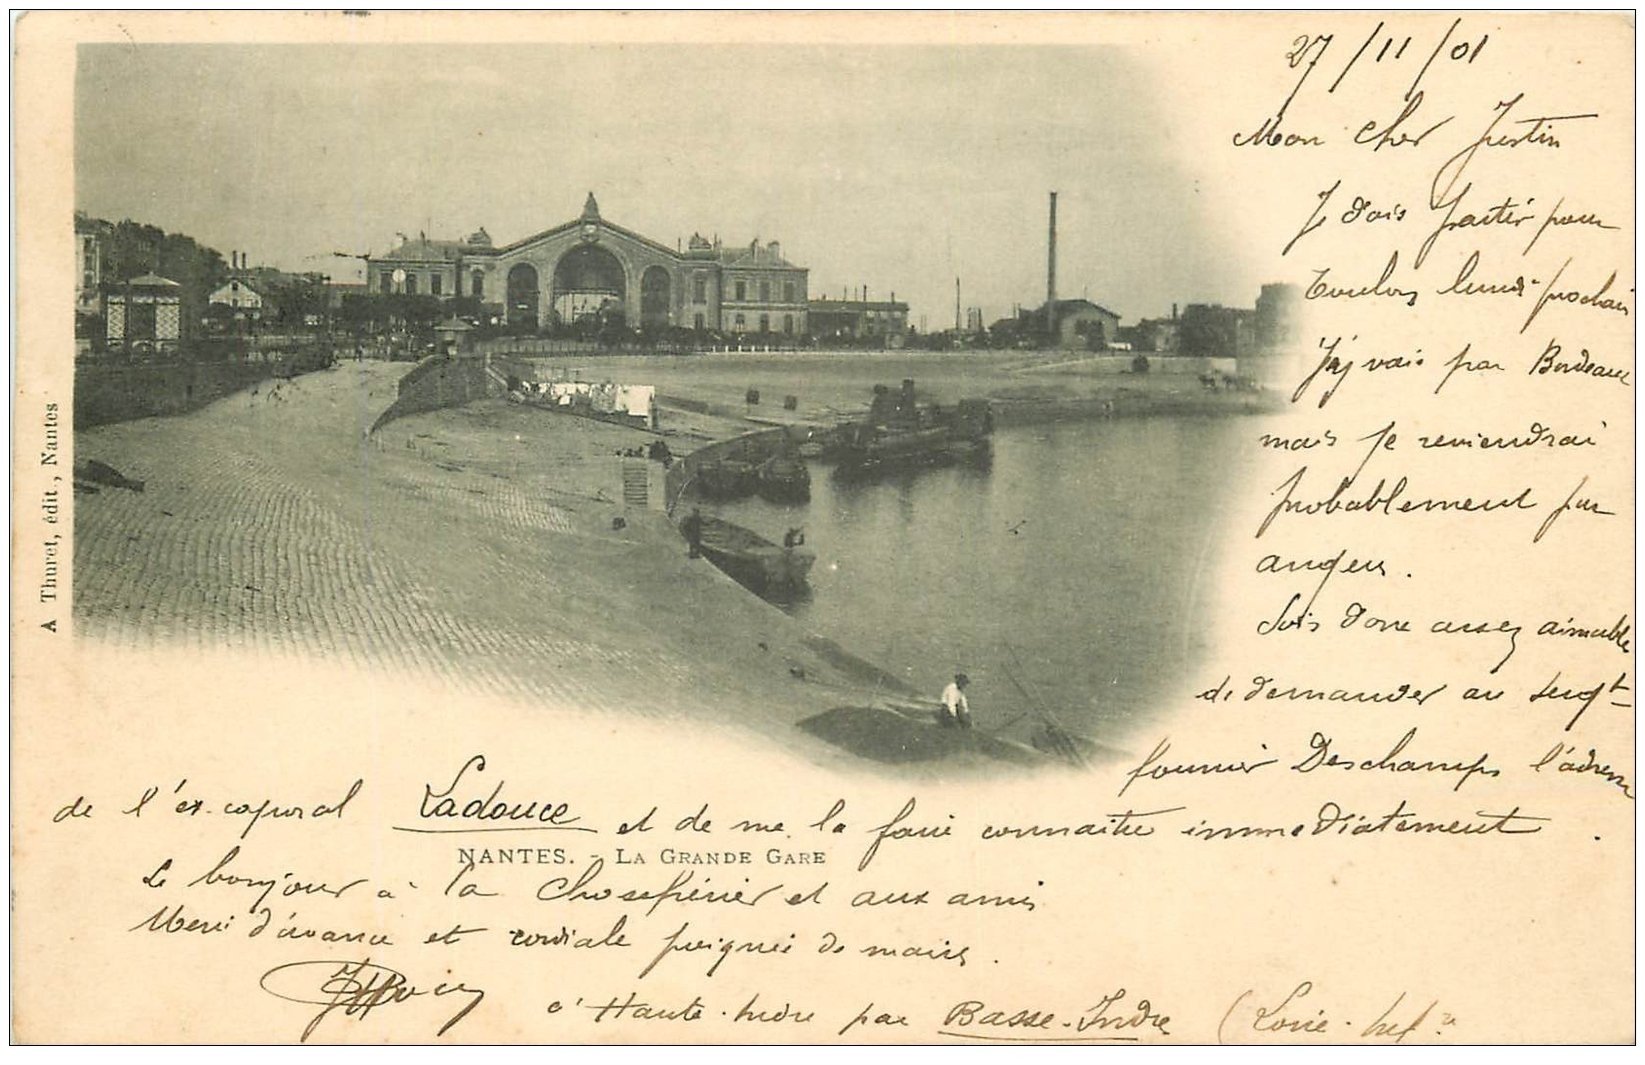 27/11/01
Mon cher Justin
Je dois partir pour
Toulon lundi prochain
J'y vais par Bordeaux
mais je reviendrai
probablement par
angers.
Sois donc assez aimable
de demander au sergt
fourrier Deschamps l'adresse
de l'ex-caporal Ladouce et de me la faire connaitre immediatement.
NANTES. - LA GRANDE GARE
Le bonjour à la et aux amis
Merci d'avance et cordiale poignée de mains.
à Haute-Indre par Basse-Indre (Loire-Infre
A Thuret, édit., Nantes